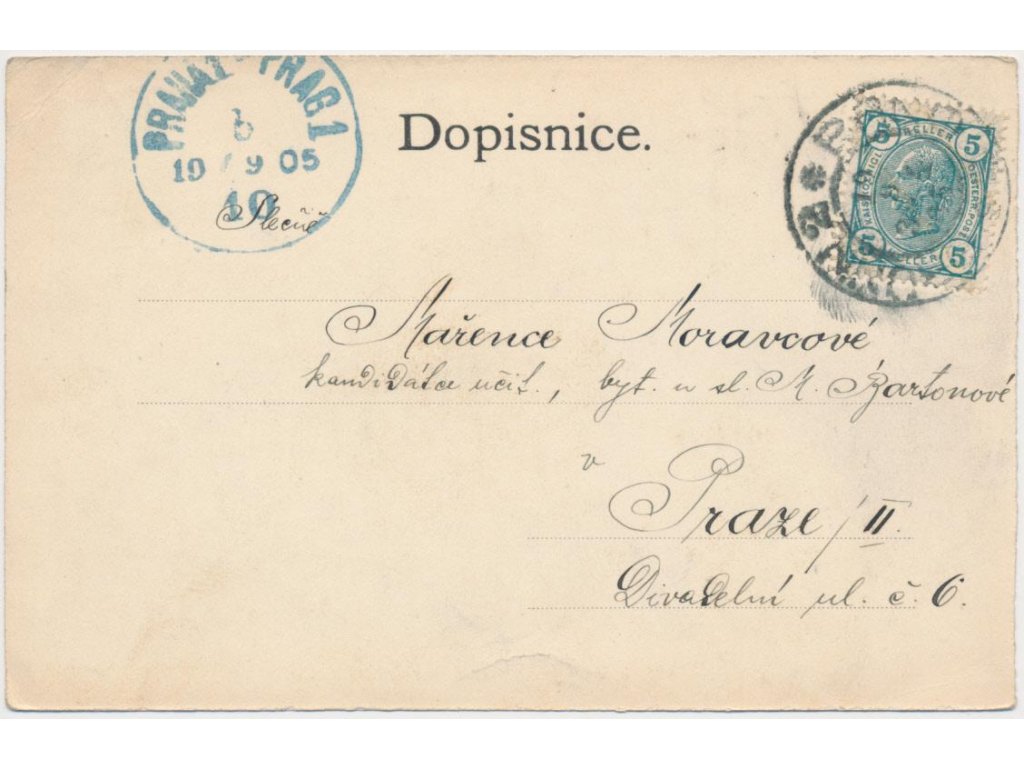 PRAHA 1 PRAG 1
b
19 / 9 05
10
Dopisnice.
5 HELLER 5
KAIS. KÖNIGL. OESTERR. POST
5 HELLER 5
Slečně
Mařence Moravcové
kandidátce učit., byt. u sl. M. Bartonové
v
Praze / II.
Divadelní ul. č. 6.